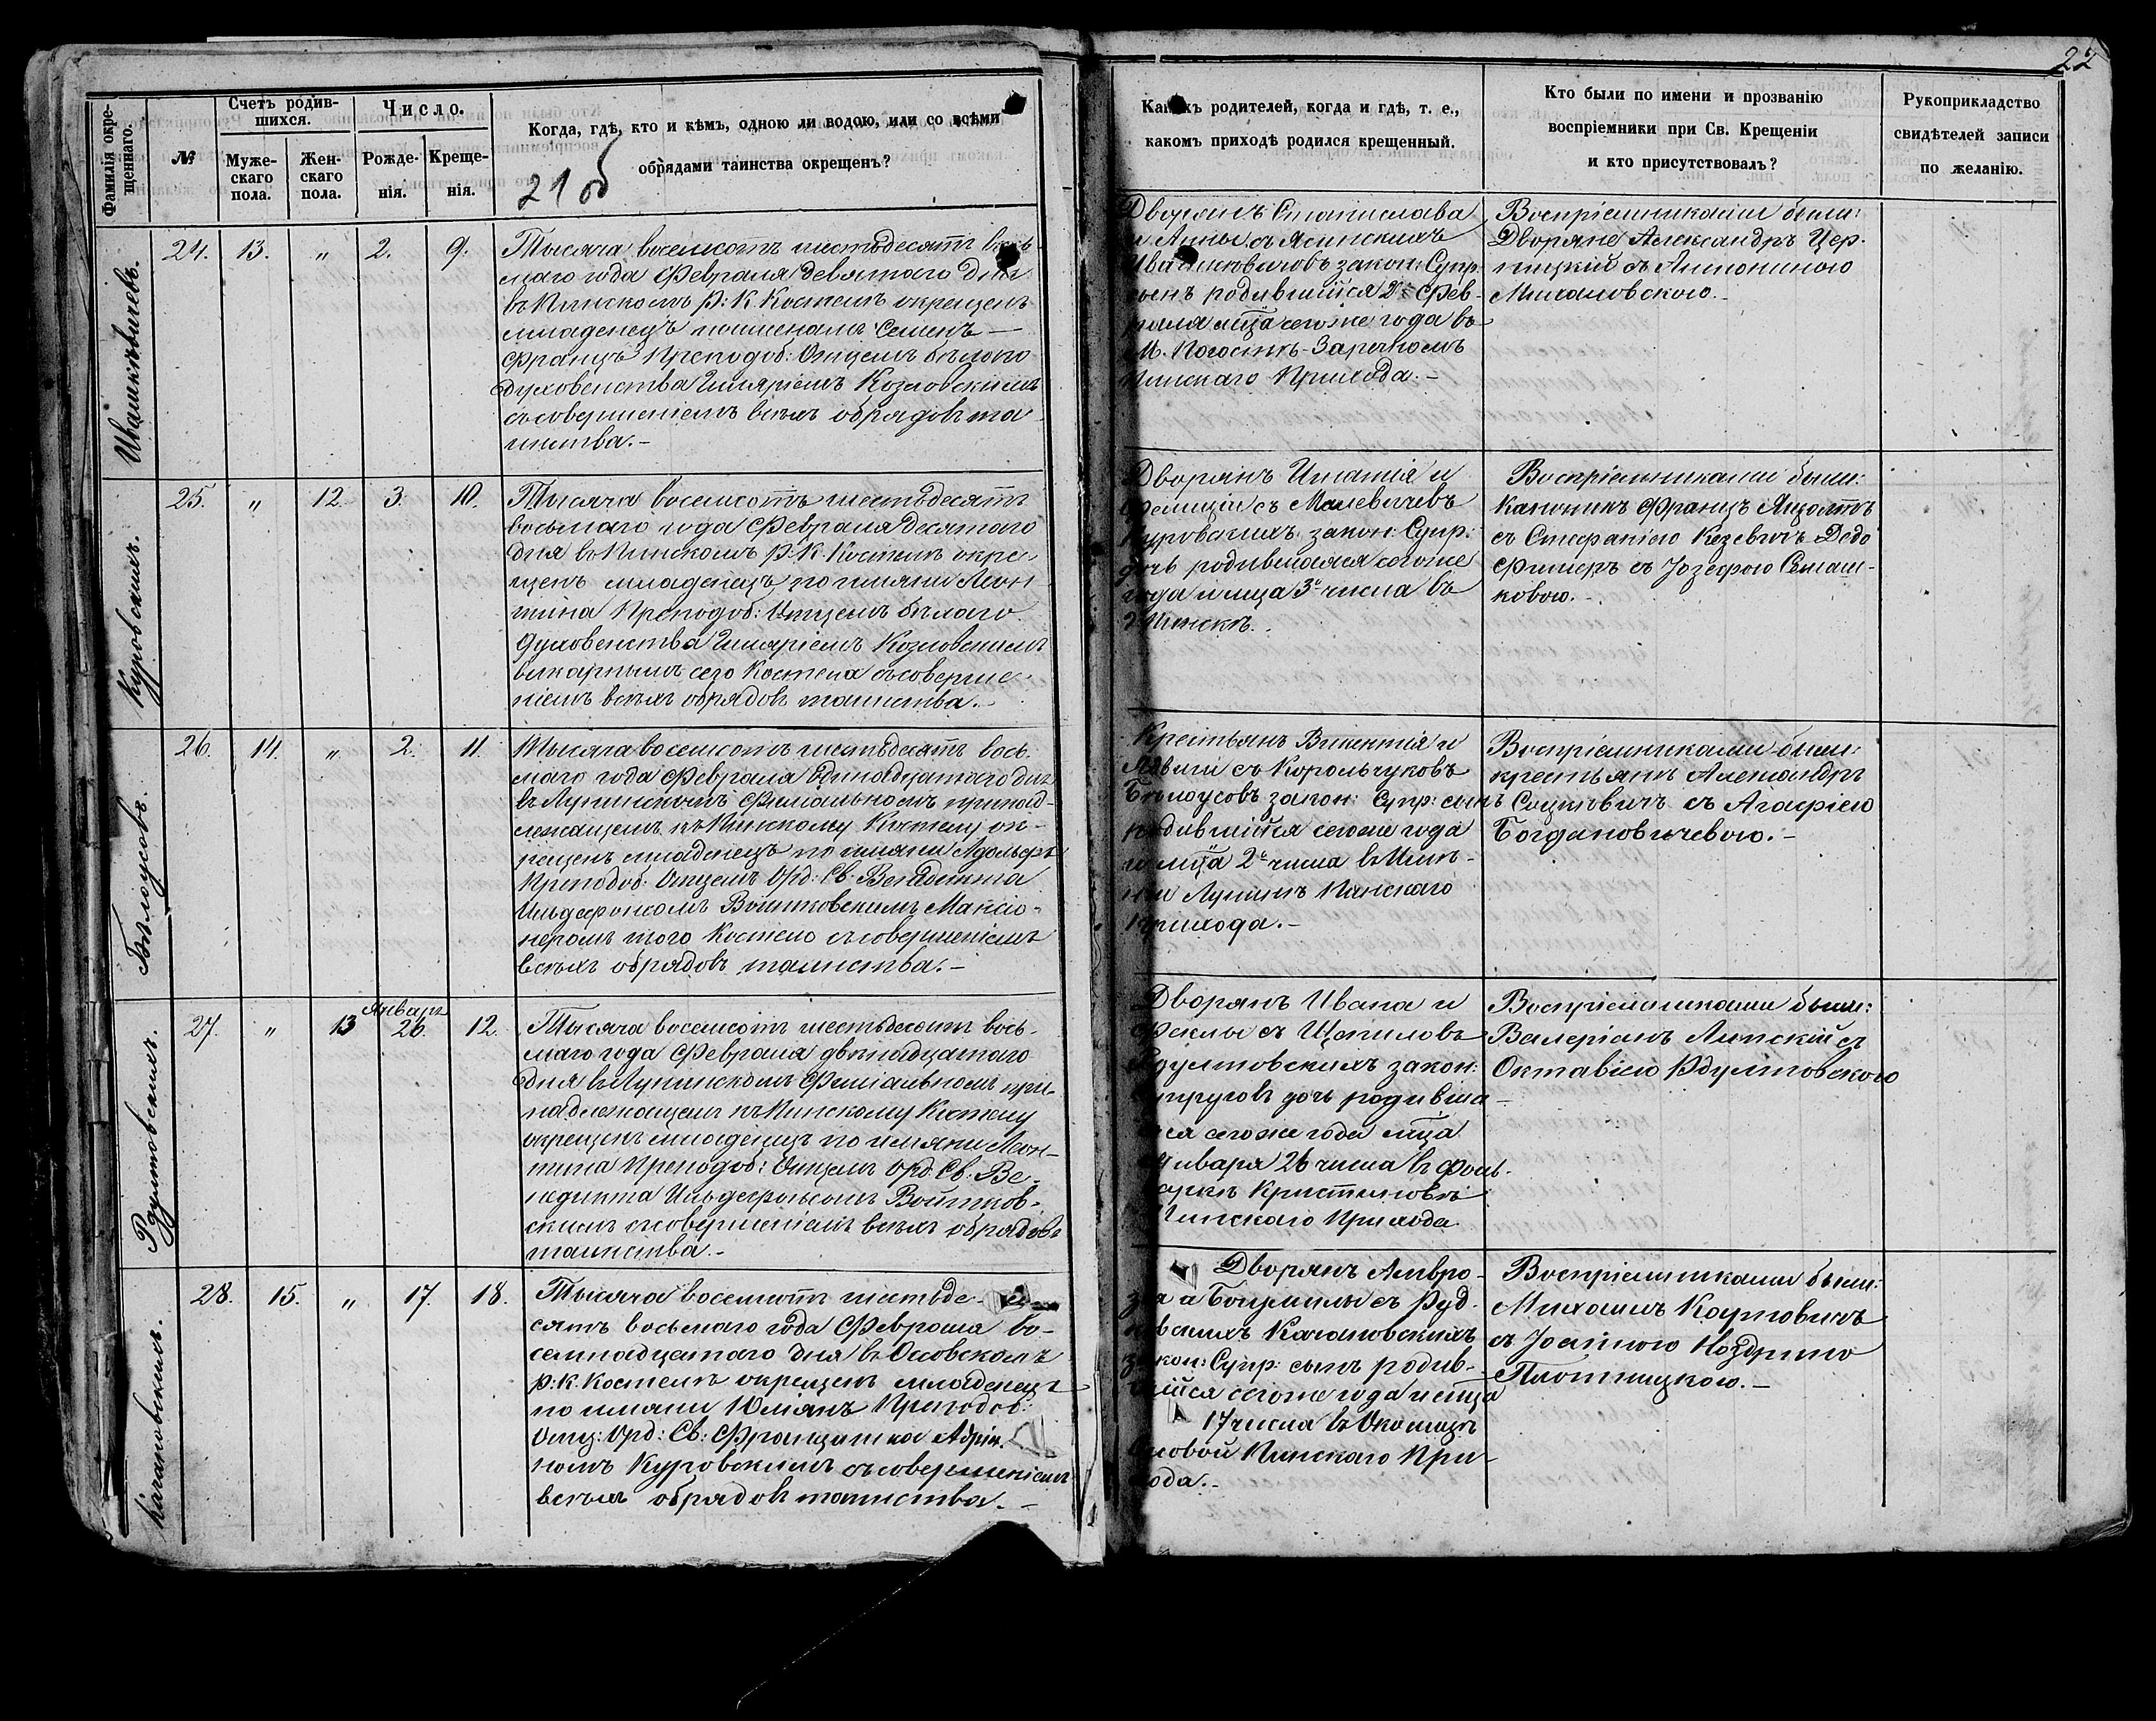 22
Фамилія окре-
щеннаго.
№
Счетъ родив-
шихся.
Муже-
скаго
пола.
Жен-
скаго
пола.
Число.
Рожде-
нія.
Креще-
нія.
Когда, гдѣ, кто и кѣмъ, одною ли водою, или со всѣми
обрядами таинства окрещенъ?
21 об
Какихъ родителей, когда и гдѣ, т. е.,
какомъ приходѣ родился крещенный.
Кто были по имени и прозванію
воспріемники при Св. Крещеніи
и кто присутствовалъ?
Рукоприкладство
свидѣтелей записи
по желанію.
Ивашкѣвичевъ.
24. 13. " 2. 9.
Тысяча восемсотъ шестьдесятъ вось-
маго года Февраля девятаго дня
въ Пинскомъ Р: К. Костелѣ окрещенъ
младенецъ именамъ Семенъ —
Францъ Преподоб: Отцемъ бѣлого
духовенства Гиляріемъ Козловскимъ
съ совершеніемъ всѣхъ обрядовъ та
инства. –
Дворянъ Станислава
и Анны съ Ясинскихъ
Ивашкевичовъ закон: Супр:
сынъ родившійся 2го Фев-
раля мца сегоже года въ
М. Погостѣ-Зарѣчномъ
Пинскаго Прихода. –
Воспріемниками были:
Дворяне Александръ Цер-
пицкій съ Антониною
Михаловскою. –
Куровскихъ.
25. " 12. 3. 10.
Тысяча восемсотъ шестьдесятъ
восьмаго года Февраля десятаго
дня въ Пинскомъ Р. К. Костелѣ окре-
щенъ младенецъ по имяни Леон
тина Преподоб: Отцемъ бѣлаго
духовенства Гиляріемъ Козловскимъ
викарнымъ сего Костела съ соверше-
ніемъ всѣхъ обрядовъ таинства. –
Дворянъ Игнатія и
Фелиціи съ Малевичевъ
Куровскихъ закон: Супр:
дочь родившаяся сегоже
года и мца 3го числа въ
г. Пинскѣ.
Воспріемниками были:
Каноникъ Францъ
съ Стефаніею Кезевичъ Додо
Фишеръ съ Іозефою Семаш-
ковою. –
Бѣлоусовъ.
26. 14. " 2. 11.
Тысяча восемсотъ шестьдесятъ вось-
маго года Февраля одинадцатаго дня
въ Лунинскомъ Филіальномъ принад-
лежащемъ къ Пинскому Костелу ок-
рещенъ младенецъ по имяни Адольфъ
Преподоб: Отцемъ Орд: Св: Бенедикта
Ильдефонсомъ Войтковскимъ Мансіо-
неромъ того Костела съ совершеніемъ
всѣхъ обрядовъ таинства. –
Крестьянъ Викентія и
Ядвиги съ Корольчуковъ
Бѣлоусовъ закон: Супр: сынъ
родившійся сегоже года
и мца 2го числа въ Имѣ-
ніи Лунинъ Пинскаго
Прихода. –
Воспріемниками были:
крестьянѣ Александръ
Сацкевичъ съ Агафіею
Богдановичевою. –
Рдултовскихъ.
27. " 13 Январь 26. 12.
Тысяча восемсотъ шестьдесятъ вось-
маго года Февраля двѣнадцатаго
дня въ Лунинскомъ Филіальномъ при-
надлежащемъ къ Пинскому Костелу
окрещенъ младенецъ по имяни Леон-
тина Преподоб: Отцемъ Орд. Св: Бе-
недикта Ильдефонсомъ Войтков-
скимъ съ совершеніемъ всѣхъ обрядовъ
таинства. –
Дворянъ Ивана и
Феклы съ Щепиловъ
Рдултовскихъ закон:
Супруговъ дочь родивша
яся сегоже года мца
Января 26 числа въ Фоль-
варкѣ Кристиновѣ
Пинскаго Прихода
Воспріемниками были:
Валеріанъ Липскій съ
Октавіею Рдултовскою
Качановскихъ.
28. 15. " 17. 18.
Тысяча восемсотъ шестьде-
сятъ восьмаго года Февраля во-
семнадцатаго дня въ Осовскомъ
р. к. Костелѣ окрещенъ младенецъ
по имяни Юліянъ Преподоб:
Отц: Орд: Св: Францишка Адріа-
номъ Куровскимъ съ совершеніемъ
всѣхъ обрядовъ таинства. –
Дворянъ Амвро-
зія и Богумилы съ Руд-
ковскихъ Качановскихъ
закон: Супр: сынъ родив-
шійся сегоже года и мца
17 числа въ Околицѣ
Осовой Пинскаго При-
хода. –
Воспріемниками были:
Михаилъ Каупович
съ Іоанною Ноздрино
Плотницкою. –